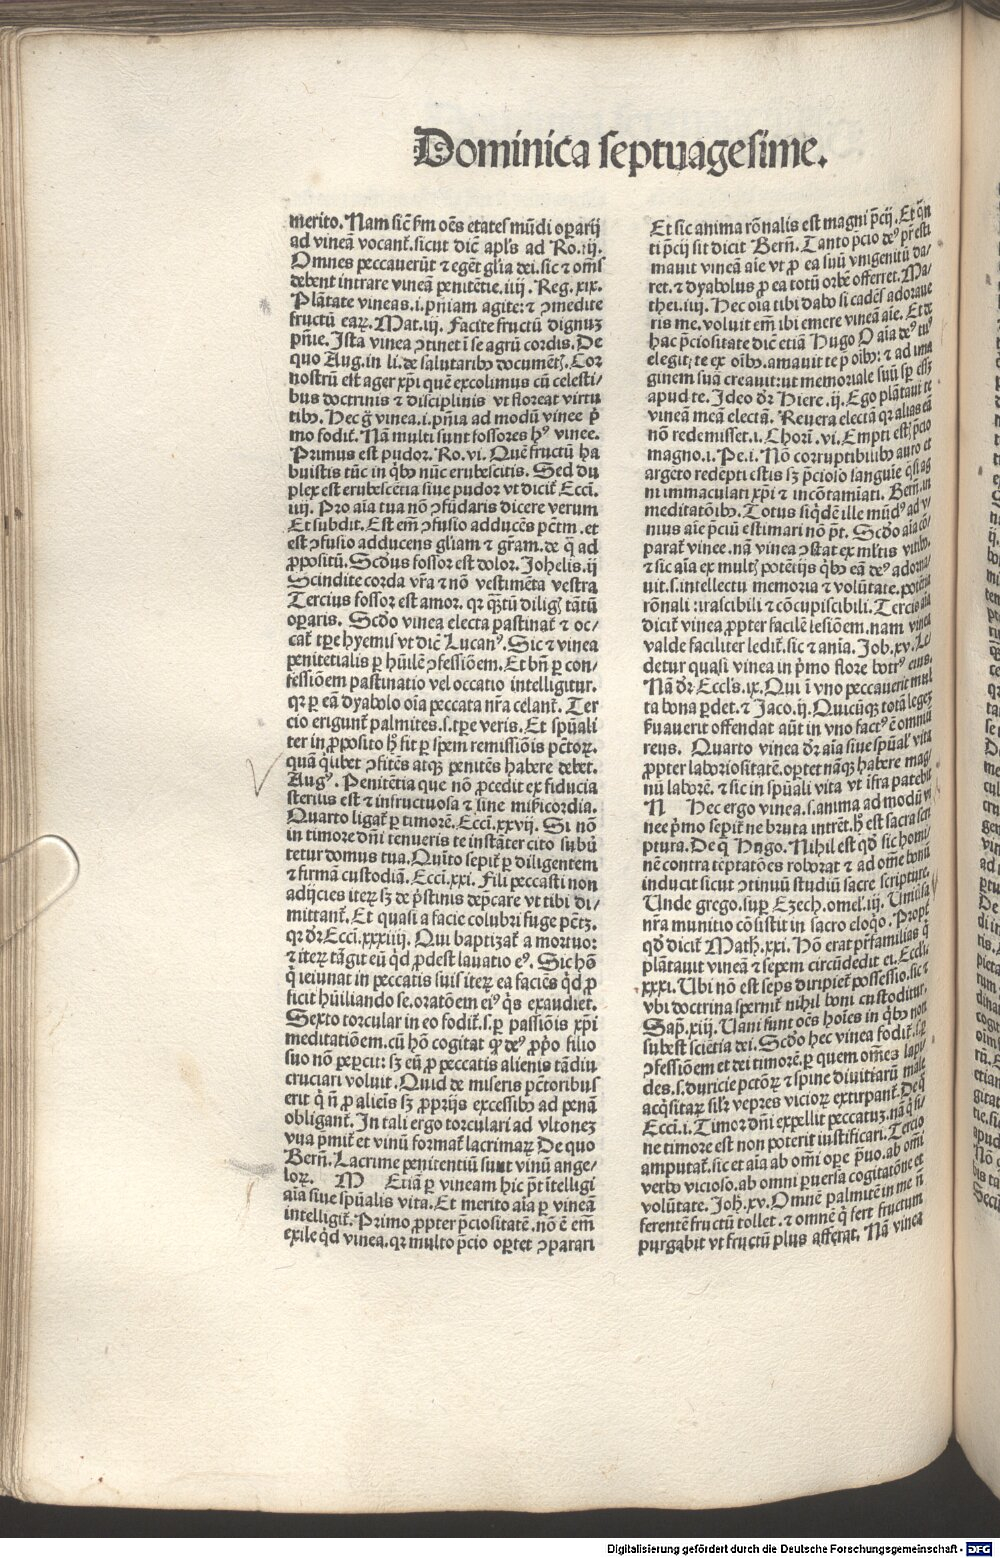 Dominica septuagesime.
merito. Nam sic̄ s̄m oēs etates mūdi oꝑarij
ad vineā vocant̄. sicut dic̄ apl's ad Ro. iij.
Omnes peccauerūt ⁊ egēt gl'ia dei. sic ⁊ om̄s
debent intrare vineā penitētie. iiij. Reg. xix.
Plātate vineas .i. pn̄iam agite: ⁊ ꝯmedite
fructū eaꝝ. Mat. iij. Facite fructū dignuꝫ
pn̄ie. Ista vinea ꝯtinet ī se agrū cordis. De
quo Aug. in li. de salutaribꝰ documētꝭ. Cor
nostrū est ager xp̄i quē excolimus cū celesti/
bus doctrinis ⁊ disciplinis vt floreat virtu
tibꝰ. Hec g̊ vinea .i. pn̄ia ad modū vinee p̄
mo fodit̄. Nā multi sunt fossores hꝰ vinee.
Primus est pudor. Ro. vi. Quē fructū ha
buistis tūc in qͥbꝰ nūc erubescitis. Sed du
plex est erubescētia siue pudor vt dicit̄ Ecci.
iiij. Pro aīa tua nō ꝯfūdaris dicere verum
Et subdit. Est em̄ ꝯfusio adducēs pctm̄. et
est ꝯfusio adducens gl'iam ⁊ gr̄am. de q̄ ad
ꝓpositū. Scd̄us fossor est dolor. Johelis. ij
Scindite corda vr̄a ⁊ nō vestimēta vestra
Tercius fossor est amor. qꝛ qͣꝫtū diligꝭ tātū
oꝑaris. Scd̄o vinea electa pastinat̄ ⁊ oc/
cat̄ tp̄e hyemis vt dic̄ Lucanꝰ. Sic ⁊ vinea
penitētialis ꝑ hūilē ꝯfessiōem. Et bn̄ ꝑ con/
fessiōem pastinatio vel occatio intelligitur.
qꝛ ꝑ eā dyabolo oīa peccata nr̄a celant̄. Ter
cio erigunt̄ palmites .s. tp̄e veris. Et spūali
ter in ꝓposito hͦ fit ꝑ spem remissiōis pctōꝝ.
quā qͥlibet ꝯfitēs atqꝫ penitēs habere debet.
Augꝰ. Penitētia que nō ꝓcedit ex fiducia
sterilis est ⁊ infructuosa ⁊ sine mīsericordia.
Quarto ligat̄ ꝑ timorē. Ecci. xxvij. Si nō
in timore dn̄i tenueris te instāter cito subū
tetur domus tua. Quīto sepit̄ ꝑ diligentem
⁊ firmā custodiā. Ecci. xxi. Fili peccasti non
adijcies iteꝝ sꝫ de pͥstinis dep̄care vt tibi di/
mittant̄. Et quasi a facie colubri fuge pctꝫ.
qꝛ dr̄ Ecci. xxxiiij. Qui baptizat̄ a mortuo:
⁊ iteꝝ tāgit eū qͥd ꝓdest lauatio eꝰ. Sic hō
qͥ ieiunat in peccatis suis iteꝝ ea faciēs qͥd ꝓ
ficit hūiliando se. oratōem eiꝰ qͥs exaudiet.
Sexto torcular in eo fodit̄ .s. ꝑ passiōis xp̄i
meditatiōem. cū hō cogitat qͥ deꝰ ꝓpͥo filio
suo nō peꝑcit: sꝫ eū ꝓ peccatis alienis tādiu
cruciari voluit. Quid de miseris pctōribus
erit qͥ n̄ ꝓ alienis sꝫ ꝓprijs excessibꝰ ad penā
obligant̄. In tali ergo torculari ad vltionē
vua p̄mit̄ et vinū formāt lacrimaꝝ De quo
Bern̄. Lacrime penitentiū sunt vinū ange/
loꝝ. M Etiā ꝑ vineam hic pōt ītelligi
aīa siue spūalis vita. Et merito aīa ꝑ vineā
intelligit̄. Primo ꝓpter p̄ciositatē. nō ē em̄
exile qͥd vinea. qꝛ multo p̄cio oꝑtet ꝯparari
Et sic anima rōnalis est magni p̄cij. Et qn̄
ti p̄cij sit dicit Bern̄. Tanto p̄cio deꝰ pr̄ esti
mauit vineā aīe vt ꝓ ea suū vnigenitū da/
ret. ⁊ dyabolus ꝓ ea totū orbē offerret. Ma/
thei. iiij. Hec oīa tibi dabo si cadēs adoraue
ris me. voluit em̄ ibi emere vineā aīe. Et de
hac p̄ciositate dic̄ etiā Hugo O aīa deꝰ tuꝰ
elegit te ex oībꝰ. amauit te p̄ oībꝰ: ⁊ ad ima
ginem suā creauit: ut memoriale suū sp̄ eēꝫ
apud te. Ideo dr̄ Hiere. ij. Ego plātaui te
vineā meā electā. Reuera electā qꝛ alias eā
nō redemisset. i. Chorī. vi. Empti estꝭ p̄cio
magno. i. Pe. i. Nō corruptibilibꝰ auro et
argēto redepti estis sꝫ p̄cioso sanguīe qͣsi ag
ni immaculati xp̄i ⁊ incōtamīati. Bern̄. in
meditatōibꝰ. Totus siqͥdē ille mūdꝰ ad v/
nius aīe p̄ciū estimari nō pōt. Scd̄o aīa cō/
parat̄ vinee. nā vinea ꝯstat ex ml'tis vitibꝰ.
⁊ sic aīa ex multꝭ potētijs qͥbꝰ eā deꝰ adorna/
uit .s. intellectu memoria ⁊ volūtate. potētia
rōnali: irascibili ⁊ cōcupiscibili. Tercio aīa
dicit̄ vinea ꝓpter facilē lesiōem. nam vinea
valde faciliter ledit̄. sic ⁊ anīa. Job. xv. Le/
detur quasi vinea in pͥmo flore botrꝰ eius.
Nā dr̄ Eccl's. ix. Qui ī vno peccauerit mul
ta bona ꝑdet. ⁊ Jaco. ij. Quicūqꝫ totā legeꝫ
s̄uauerit offendat aūt in vno factꝰ ē omniū
reus. Quarto vinea dr̄ aīa siue spūal' vita
ꝓpter laboriositatē. oꝑtet nāqꝫ habere mag/
nū laborē. ⁊ sic in spūali vita vt īfra patebit
N Hec ergo vinea .s. anima ad modū vi
nee pͥmo sepit̄ ne bruta intrēt. hͦ est sacra scri
ptura. De qͣ Hugo. Nihil est qd̄ sic homi/
nē contra tēptatōes roborat ⁊ ad omē bonū
inducit sicut ꝯtinuū studiū sacre scripture.
Unde grego. suꝑ Ezech. omel'. iij. Uniūsa
nr̄a munitio cōsistit in sacro eloqͦ. Propt̄
qd̄ dicit̄ Math. xxi. Hō erat pr̄familias qͥ
plātauit vineā ⁊ sepem circūdedit ei. Eccli.
xxxi. Ubi nō est seps diripiet̄ possessio. sic ⁊
vbi doctrina spernit̄ nihil boni custoditur.
Sap. xiij. Uani sunt oēs hoīes in qͥbꝰ non
subest sciētia dei. Scd̄o hec vinea fodit̄ .s. ꝑ
ꝯfessiōem et dei timorē. ꝑ quem om̄es lapi/
des .s. duricie pctōꝝ ⁊ spine diuitiarū male
acqͥsitaꝝ sil'r vepres vicioꝝ extirpant̄. De qͦ
Ecci. i. Timor dn̄i expellit peccatuꝫ. nā qͥ si/
ne timore est non poterit iustificari. Tercio
amputat̄. sic et aīa ab om̄i oꝑe p̄uo. ab om̄i
verbo vicioso. ab omni ꝑuersa cogitatōne et
volūtate. Joh̄. xv. Omnē palmitē in me n̄
ferentē fructū tollet. ⁊ omnē qͥ fert fructum
purgabit vt fructū plus afferat. Nā vinea
Digitalisierung gefördert durch die Deutsche Forschungsgemeinschaft - DFG